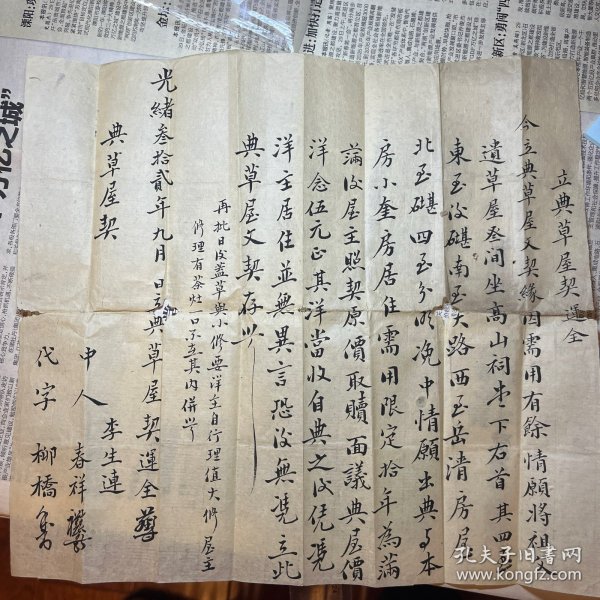 立典草屋契運全
今立典草屋文契緣因需用有餘情願將祖父
遺草屋叁间坐高山祠堂下右首其四至
東至後磡南至大路西至岳清房屋
北至磡四至分明浼中情願出典与本
房小奎房居住需用限定拾年為滿
滿後屋主照契原價取贖面議典屋價
洋念伍元正其洋當收自典之後凭凴
洋主居住並無異言恐後無凴立此
典草屋文契存炤
再批日後蓋草與小修要洋主自行理值大修屋主
修理有茶灶一口不立其内併炤
光緒叁拾貳年九月 日立典草屋契運全
典草屋契
李生連
中人 春祥
代字 柳橋
孔夫子旧書网
www.kongfz.com